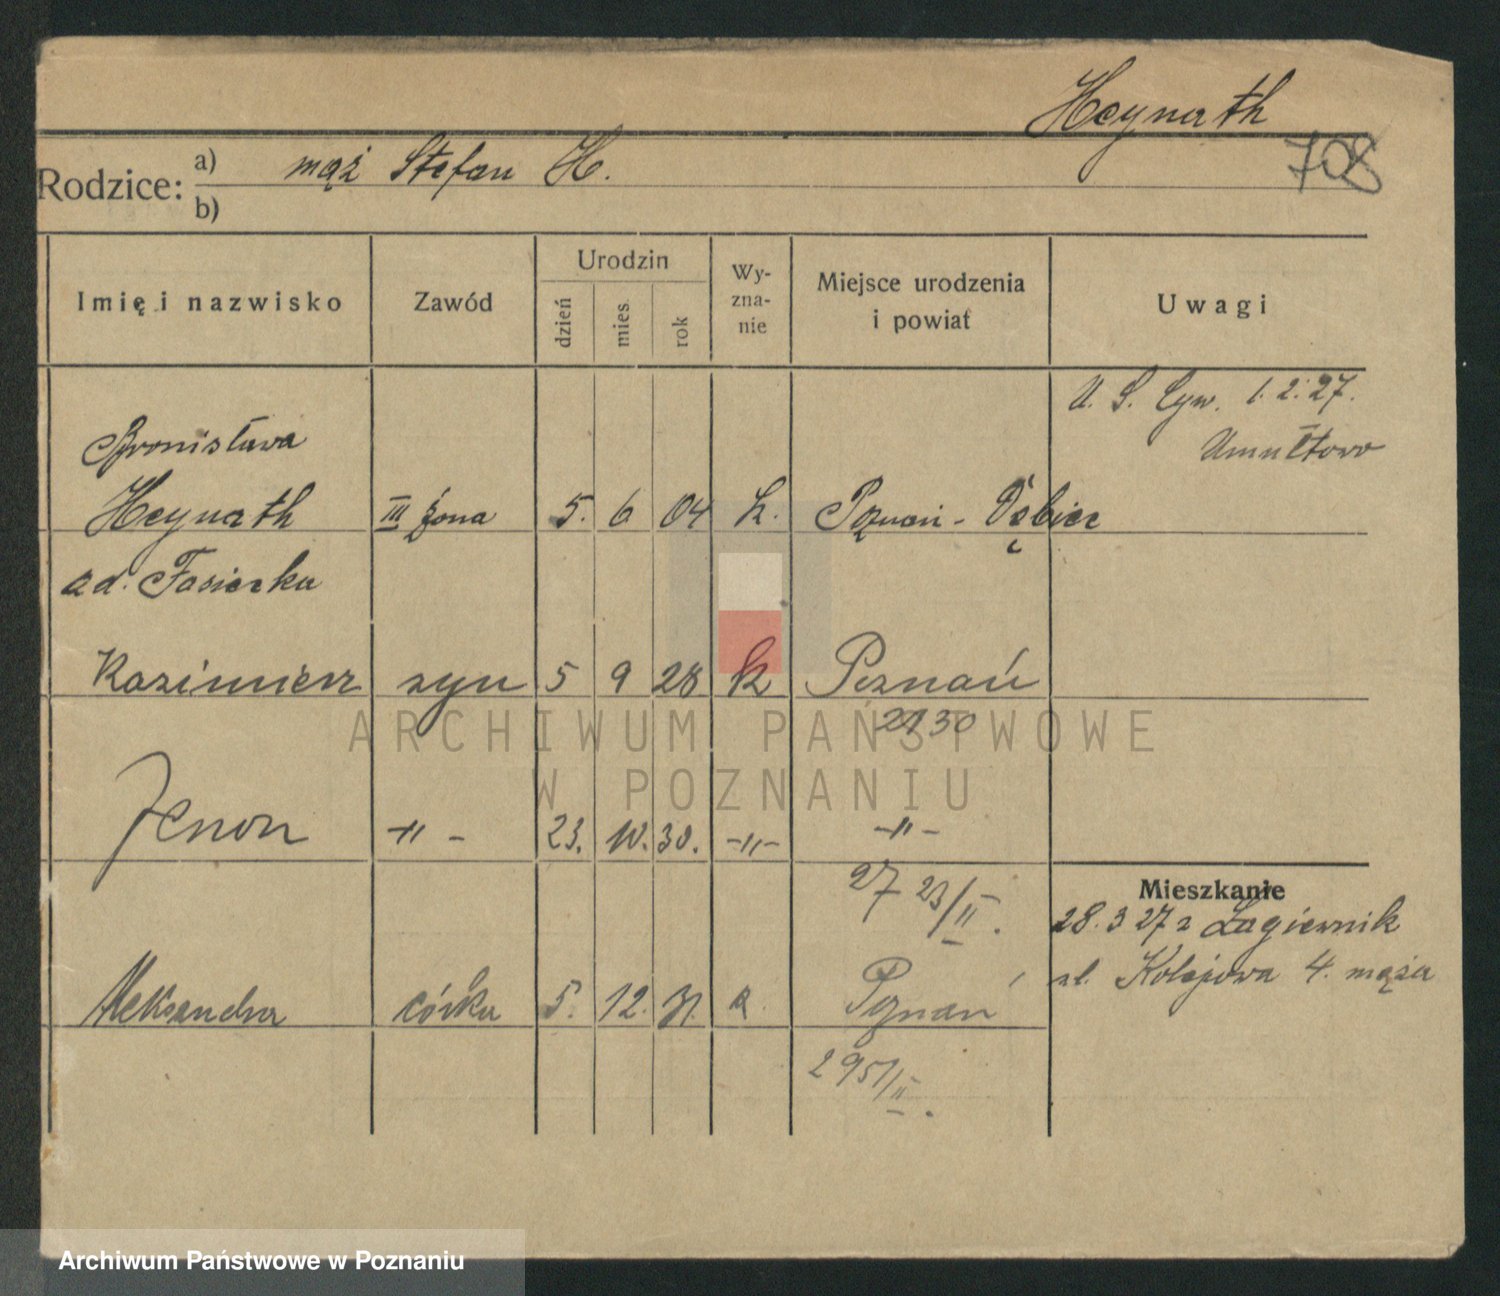 Heynath
708
Rodzice: a) mąż Stefan H.
b)
Imię i nazwisko
Zawód
Urodzin
dzień
mies
rok
Wy-
zna-
nie
Miejsce urodzenia
i powiat
Uwagi
U. S. Cyw. 1. 2. 27.
Umultowo
Bronisława
Heynath III żona 5. 6 04 k. Poznań - Dębiec
zd.
Kazimierz syn 5 9 28 k Poznań
2130
Zenon -"- 23. 10. 30. -"- -"-
27 23/II.
Mieszkanie
28. 3 27 z Łagiewnik
ul. Kolejowa 4. męża
Aleksandra córka 5. 12. 31. k. Poznań
2951/II.
ARCHIWUM PAŃSTWOWE
W POZNANIU
Archiwum Państwowe w Poznaniu